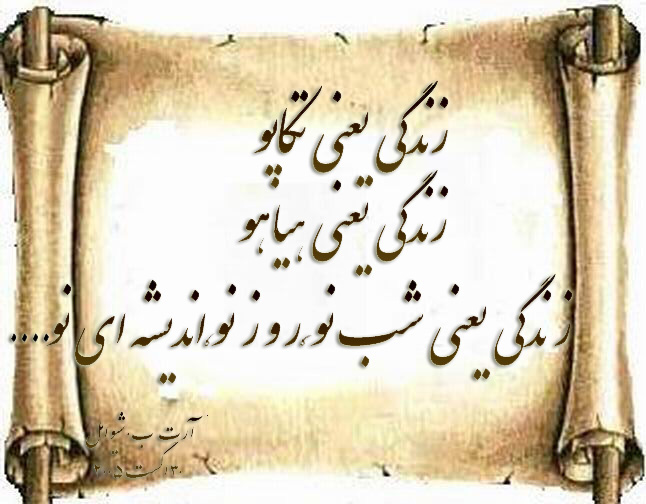 زندگی یعنی تکاپو
زندگی یعنی هیاهو
زندگی یعنی شب نو،روز نو،اندیشه ای نو....
آرت ب.